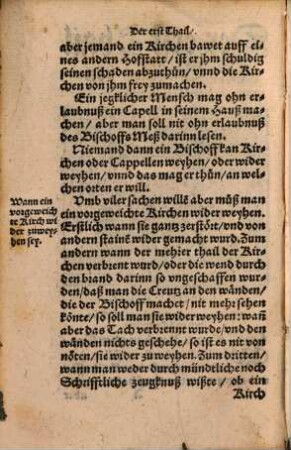 Der erst Thail/
aber jemand ein Kirchen bawet auff ei-
nes andern Hofstatt/ ist er jhm schuldig
seinen schaden abzuthůn/ vnnd die Kir-
chen von jhm frey zumachen.
Ein jegklicher Mensch mag ohn er-
laubnuß ein Capell in seinem Hauß ma-
chen/ aber man soll nit ohn erlaubnuß
des Bischoffs Meß darinn lesen.
Niemand dann ein Bischoff kan Kir-
chen oder Cappellen weyhen/ oder wider
weyhen/ vnnd das mag er thůn/ an wel-
chen orten er will.
Wann ein
vorgeweich
te Kirch wi
der zuwey-
hen sey.
Vmb viler sachen willẽ aber můß man
ein vorgeweichte Kirchen wider weyhen.
Erstlich wann sie gantz zerstört/ vnd von
andern stainẽ wider gemacht wurd. Zum
andern wann der mehrer thail der Kir-
chen verbrent wurd/ oder die wend durch
den brand darinn so vngeschaffen wur-
den/ daß man die Creutz an den wänden/
die der Bischoff machet/ nit mehr sehen
könte/ so soll man sie wider weyhen: wañ
aber das Tach verbrennt wurde/ vnd den
wänden nichts geschehe/ so ist es nit von
nöten/ sie wider zu weyhen. Zum dritten/
wann man weder durch mündtliche noch
Schrifftliche zeugknuß wißte/ ob ein
Kirch